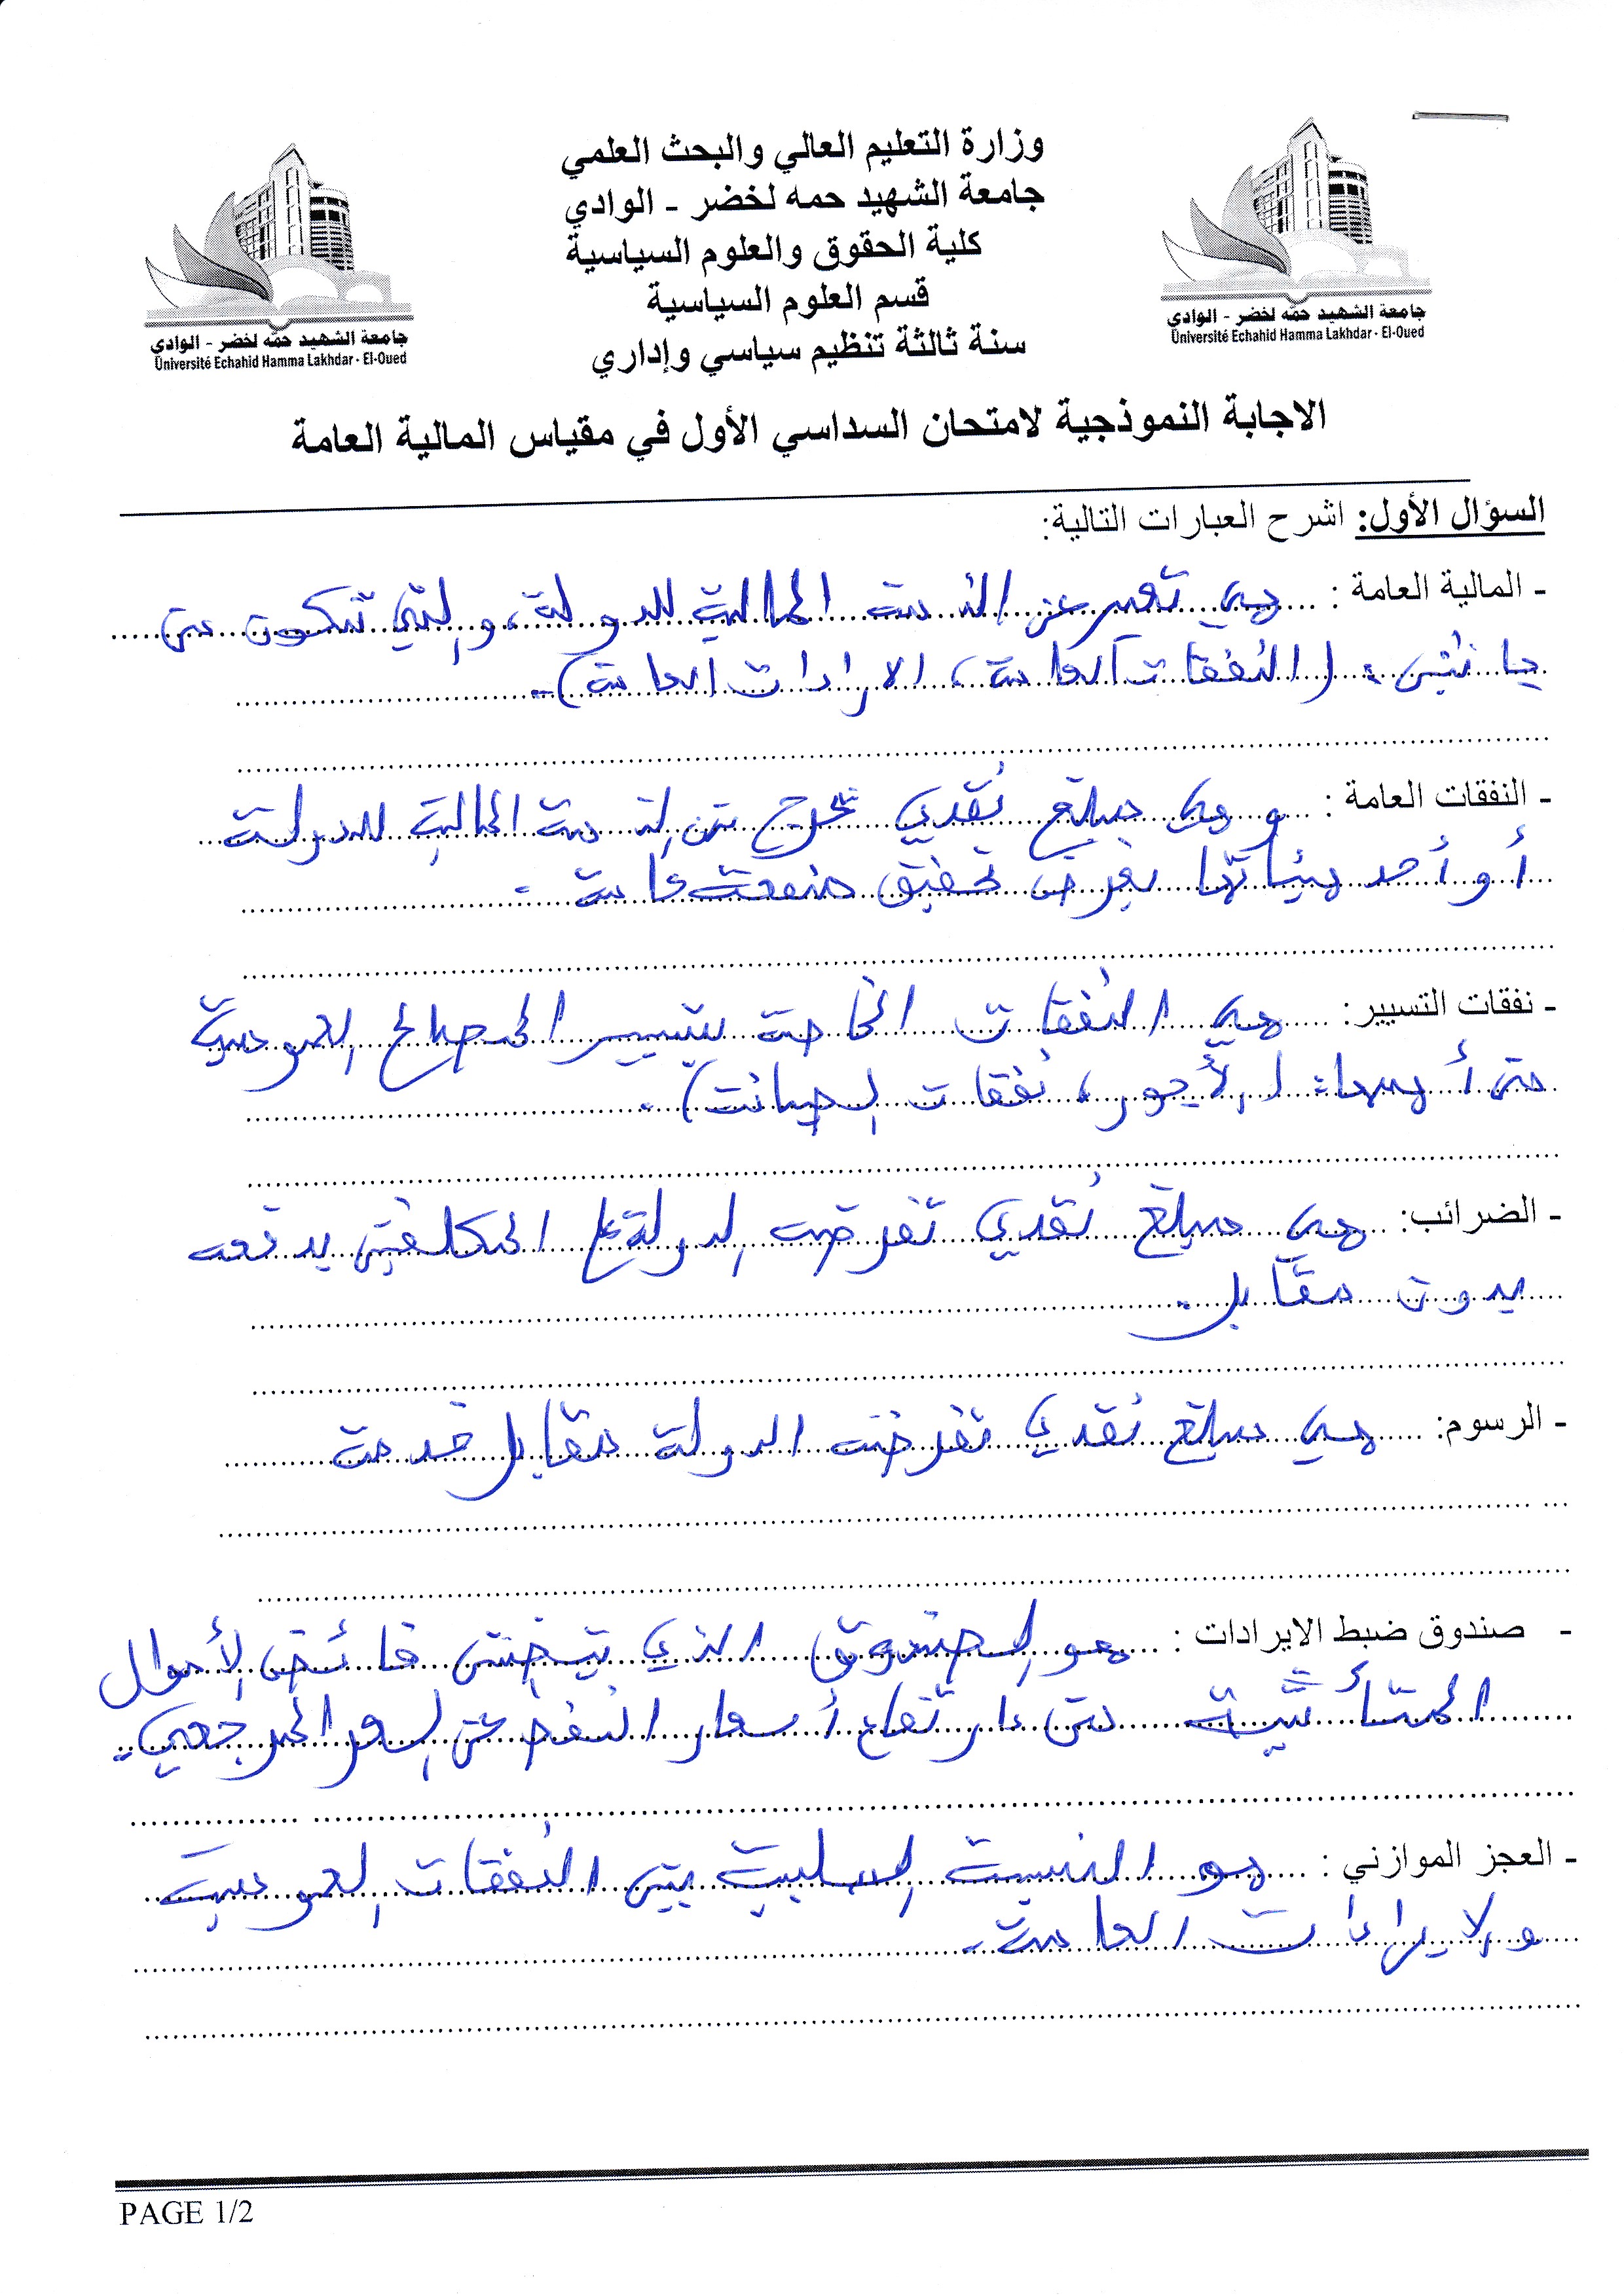 وزارة التعليم العالي والبحث العلمي
جامعة الشهيد حمه لخضر - الوادي
كلية الحقوق والعلوم السياسية
قسم العلوم السياسية
سنة ثالثة تنظيم سياسي وإداري
جامعة الشهيد حمّه لخضر - الوادي
Université Echahid Hamma Lakhdar - El-Oued
جامعة الشهيد حمّه لخضر - الوادي
Université Echahid Hamma Lakhdar - El-Oued
الاجابة النموذجية لامتحان السداسي الأول في مقياس المالية العامة
السؤال الأول: اشرح العبارات التالية:
- المالية العامة : هي تعبر عن الذمة المالية للدولة، والتي تتكون من
جانبين: (النفقات العامة، الايرادات العامة).
- النفقات العامة : وهي مبلغ نقدي تخرج من الذمة المالية للدولة
أو أحد هيئاتها بغرض تحقيق منفعة عامة.
- نفقات التسيير: هي النفقات الخاصة بتسيير المصالح العمومية
من أهمها: (الأجور، نفقات الصيانة).
- الضرائب: هي مبلغ نقدي تفرضه الدولة على المكلفين يدفعه
بدون مقابل.
- الرسوم: هي مبلغ نقدي تفرضه الدولة مقابل خدمة
- صندوق ضبط الايرادات : هو الصندوق الذي يتضمن فائض الأموال
المتأتية من ارتفاع أسعار النفط عن السعر المرجعي.
- العجز الموازني : هو النسبة السلبية بين النفقات العمومية
والايرادات العامة.
PAGE 1/2